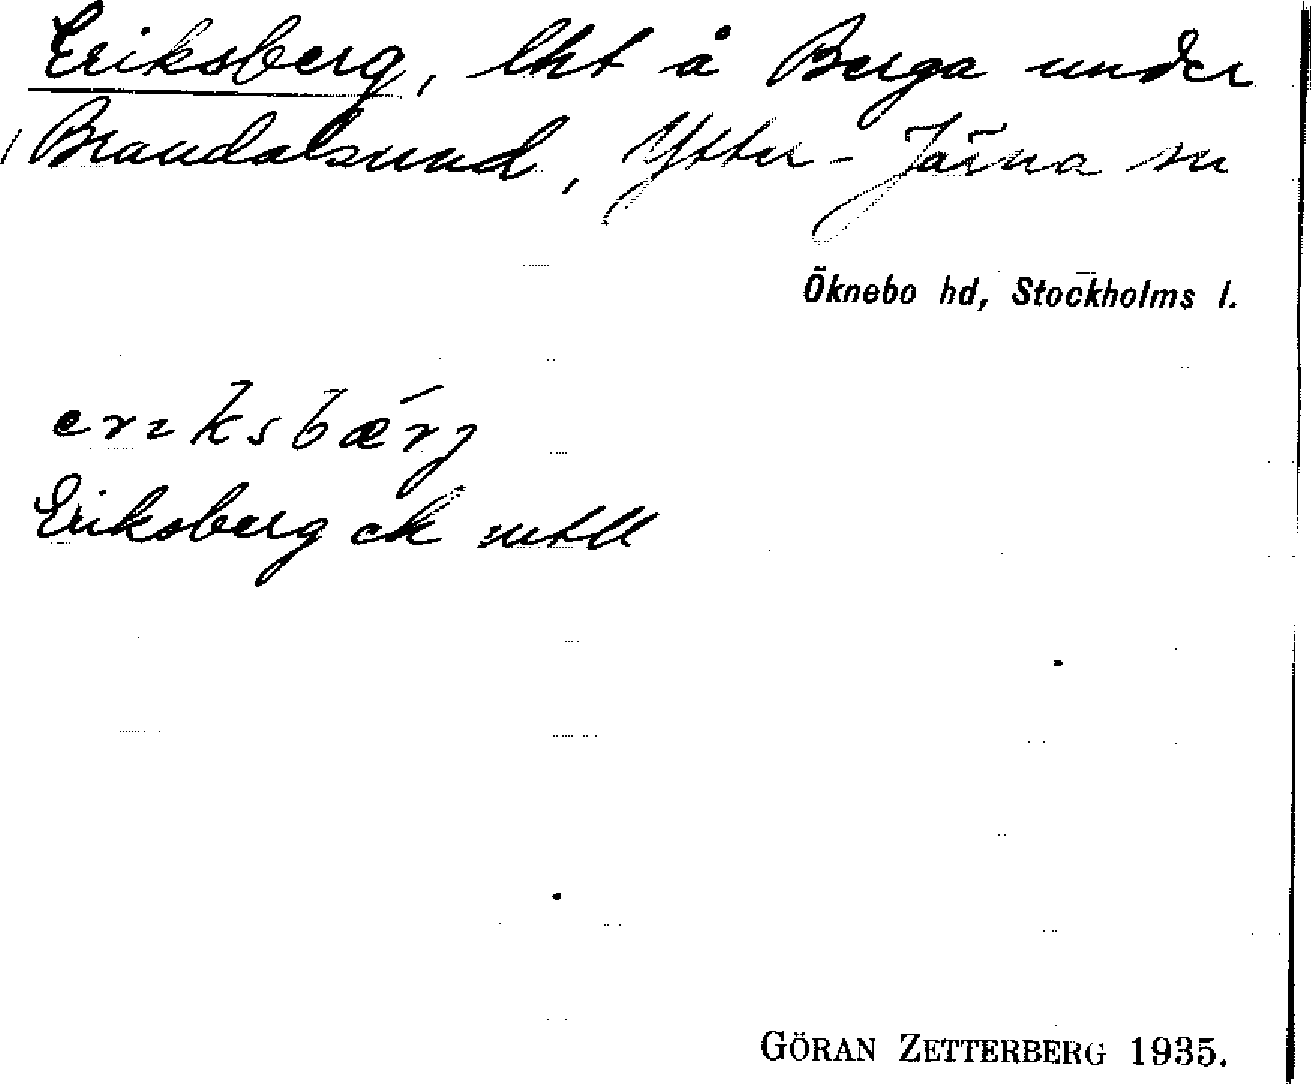 Eriksberg, lht å Berga under
Brandalsund, Ytter-Järna sn
Öknebo hd, Stockholms l.
eriksbærj
Eriksberg ek
GÖRAN ZETTERBERG 1935.